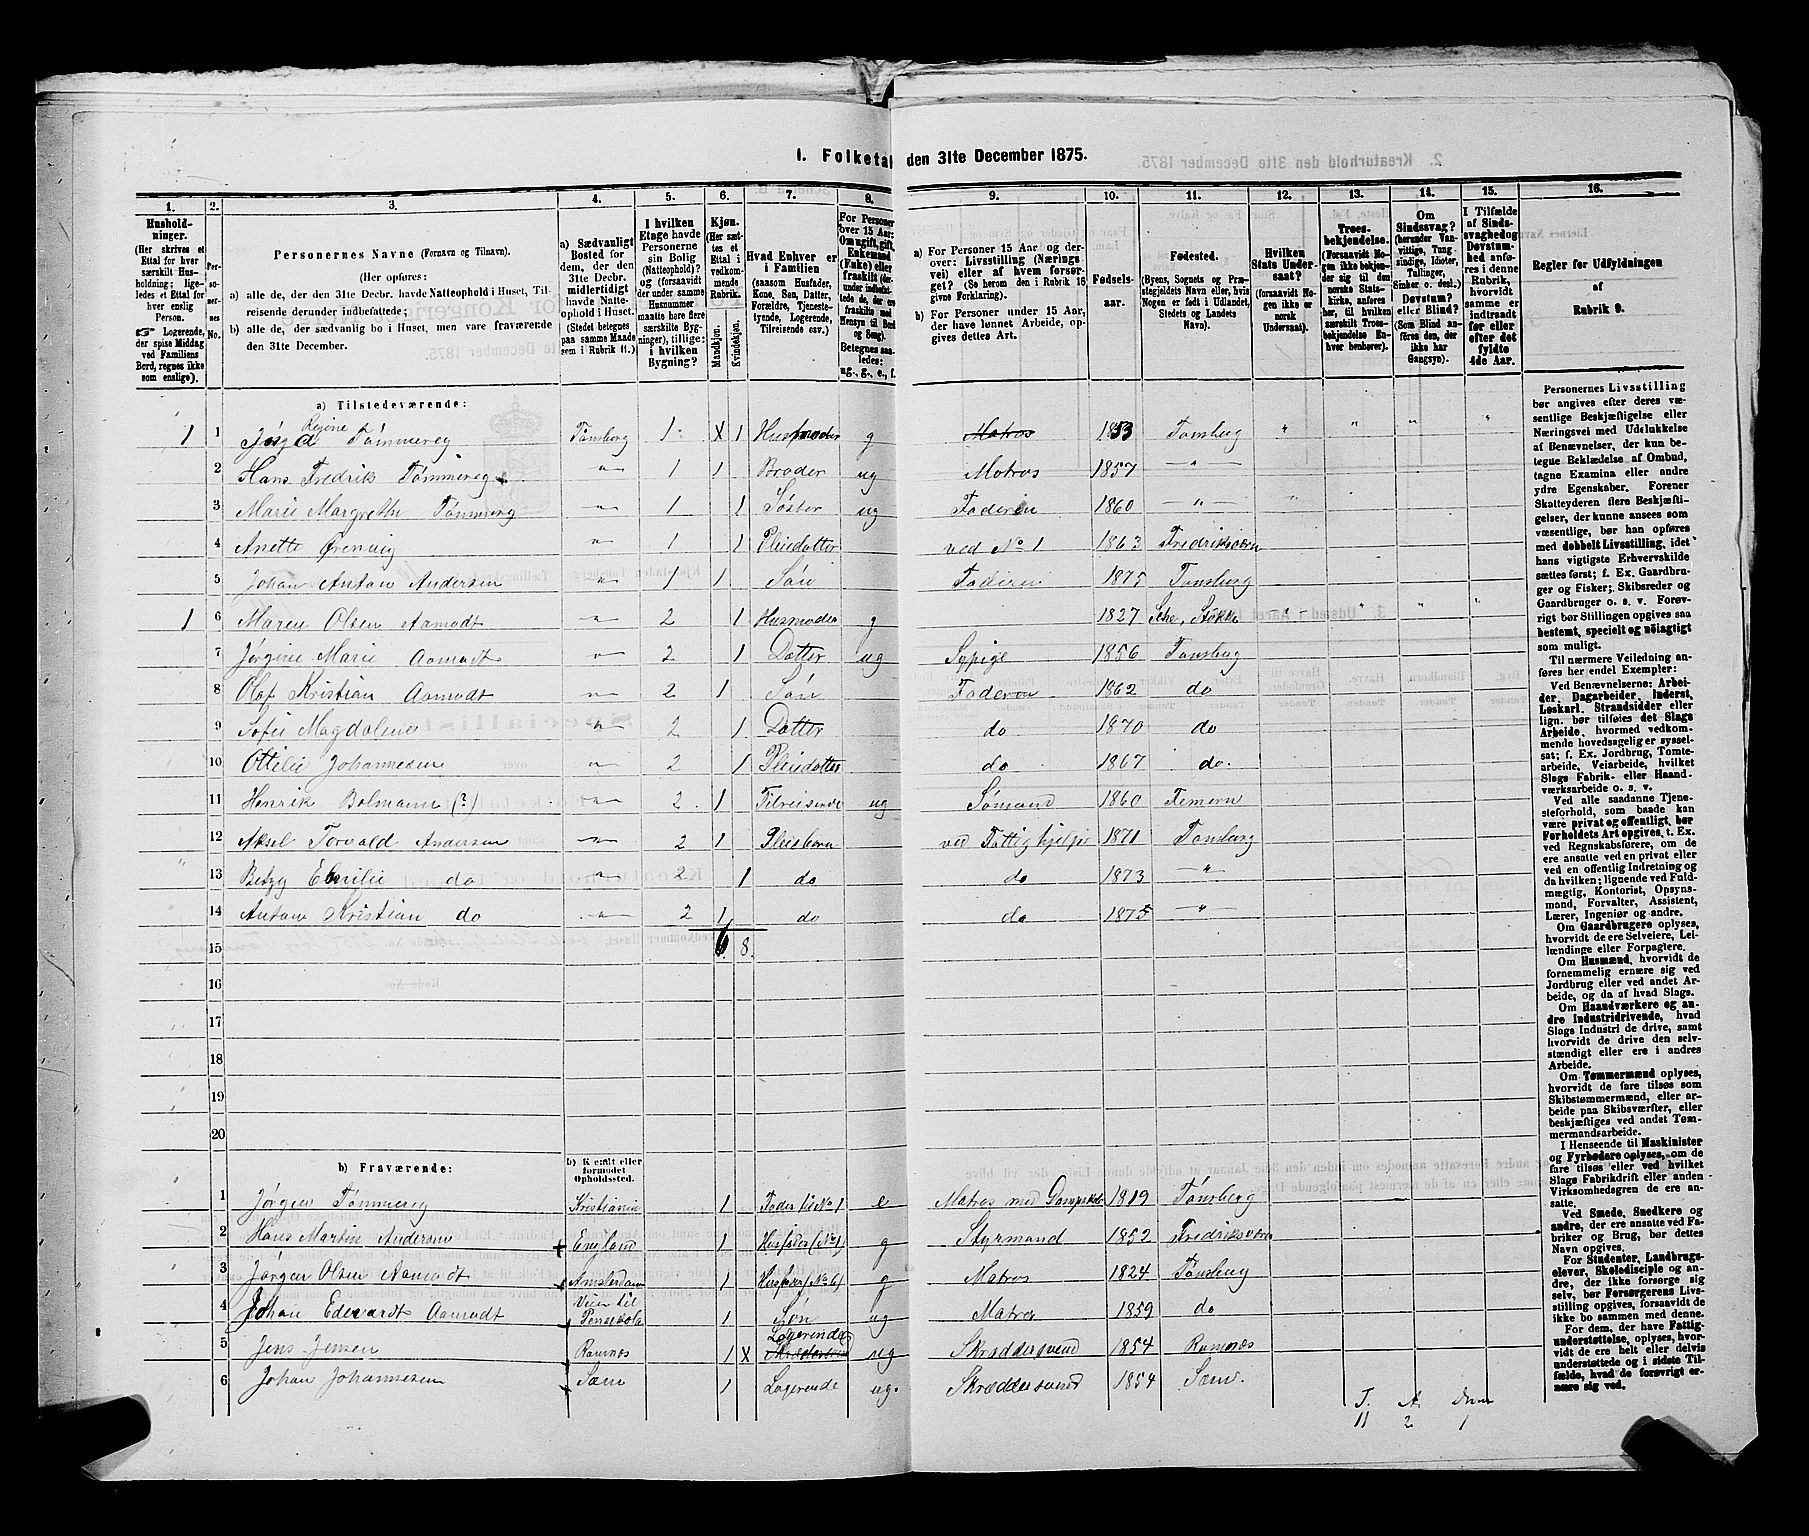 1. Folketæl den 31te December 1875.
1. 2. 3. 4. 5. 6. 7. 8. 9. 10. 11. 12. 13. 14. 15. 16.
Hushold-
ninger.
(Her skrives et
Ettal for hver
særskilt Hus-
holdning; lige-
ledes et Ettal for
hver enslig
Person.
☞ Logerende,
der spise Middag
ved Familiens
Bord, regnes ikke
som enslige).
Per-
so-
ner-
nes
No.
Personernes Navne (Fornavn og Tilnavn).
(Her opføres:
a) alle de, der den 31te Decbr. havde Natteophold i Huset, Til-
reisende derunder indbefattede;
b) alle de, der sædvanlig bo i Huset, men vare fraværende
den 31te December.
a) Sædvanligt
Bosted for
dem, der den
31te Decbr.
midlertidigt
havde Natte-
ophold i Huset.
(Stedet betegnes
paa samme Maade
som i Rubrik 11.)
I hvilken
Etage havde
Personerne
sin Bolig
(Natteophold)?
og (forsaavidt
der under samme
Husnummer
maatte høre flere
særskilte Byg-
ninger), tillige:
i hvilken
Bygning?
Kjøn.
(Her sæt-
tes et
Ettal i
vedkom-
mende
Rubrik.
Mandkjøn.
Kvindekjøn.
Hvad Enhver er
i Familien
(saasom Husfader,
Kone, Søn, Datter,
Forældre, Tjeneste-
tyende, Logerende,
Tilreisende osv.)
For Personer
over 15 Aar:
Om ugift, gift,
Enkemand
(Enke) eller
fraskilt
Betegnes saa-
ledes:
ug., g., e., f.
a) For Personer 15 Aar og der-
over: Livsstilling (Nærings
vei) eller af hvem forsør-
get? (Se herom den i Rubrik 16
givne Forklaring).
b) For Personer under 15 Aar,
der have lønnet Arbeide, op-
gives dettes Art.
Fødsels-
aar.
Fødested.
(Byens, Sognets og Præ-
stegjeldets Navn eller, hvis
Nogen er født i Udlandet,
Stedets og Landets
Navn).
Hvilken
Stats Under-
saat?
(forsaavidt No-
gen ikke er
norsk
Undersaat).
Troes-
bekjendelse.
(Forsaavidt No-
gen ikke bekjen-
der sig til den
norske Stats-
kirke, anføres
her, til hvilken
særskilt Troes-
bekjendelse En-
hver henhører).
Om
Sindssvag?
(herunder Van-
vittige, Tung-
sindige, Idioter,
Tullinger,
Sinker o. desl.)
Døvstum?
eller Blind?
(Som Blind an-
føres den, der
ikke har
Gangsyn).
I Tilfælde
af Sinds-
svaghed og
Døvstum-
hed anfø-
res i denne
Rubrik,
hvorvidt
samme er
indtraadt
før eller
efter det
fyldte
4de Aar.
Regler for Udfyldningen
af
Rubrik 9.
a) Tilstedeværende:
1 1 Regine Tømmereg Tønsberg 1 X 1 Husmoder g Matros 1853 Tønsberg " " " "
2 Hans Fredrik Tømmereg " 1 1 Broder ug Matros 1857 "
3 Marie Margrethe Tømmereg " 1 1 Søster ug Faderen 1860 " "
4 Anette Ørennig " 1 1 Pleiedatter ved No 1 1863 Fredriksværn
5 Johan Anton Andersen " 1 1 Søn Faderen 1875 Tønsberg
1 6 Maren Olsen Aamodt " 2 1 Husmoder g 1827 Stokke " " " "
7 Jørgine Marie Aamodt " 2 1 Datter ug Sypige 1856 Tønsberg
8 Olaf Kristian Aamodt " 2 1 Søn Faderen 1862 do
9 Sofie Magdalene " 2 1 Datter do 1870 do
10 Ottilie Johannesen " 2 1 Pleiedatter do 1867 do.
11 Henrik Bolmann (?) " 2 1 Tilreisende ug Sømand 1860 Femern
12 Aksel Torvald Andersen " 2 1 Pleiebarn ved Fattighjelp 1871 Tønsberg
13 Betzy Emilie do " 2 1 do do 1873 "
14 Anton Kristian do " 2 1 do do 1875 "
15 6 8.
16
17
18
19
20
b) Fraværende:
b) Kjendt eller
formodet
Opholdssted.
1 Jørgen Tømmereg Kristiania 1 Fader til No 1 e Matros med Dampskib 1819 Tønsberg
2 Hans Martin Andersen England 1 Husfader (No 1) g Styrmand 1852 Fredriksværn
3 Jørgen Olsen Aamodt Amsterdam 1 Husfader (No 6) g Matros 1824 Tønsberg
4 Johan Edevardt Aamodt Veien til Pensakola 1 Søn ug Matros 1859 do
5 Jens Jensen Ramnæs 1 X Logerende ug Skræddersvend 1854 Ramnæs
6 Johan Johannesen Sæm 1 Logerende ug. Skræddersvend 1854 Sæm.
T. A.
11 2 1
Personernes Livsstilling
bør angives efter deres væ-
sentlige Beskjæftigelse eller
Næringsvei med Udelukkelse
af Benævnelser, der kun be-
tegne Beklædelse af Ombud,
tagne Examina eller andre
ydre Egenskaber. Forener
Skatteyderen flere Beskjæfti-
gelser, der kunne ansees som
væsentlige, bør han opføres
med dobbelt Livsstilling, idet
hans vigtigste Erhvervskilde
sættes først; f. Ex. Gaardbru-
ger og Fisker; Skibsreder og
Gaardbruger o. s. v. Forøv-
rigt bør Stillingen opgives saa
bestemt, specielt og nöiagtigt
som muligt.
Til nærmere Veiledning an-
føres her endel Exempler:
Ved Benævnelserne: Arbei-
der, Dagarbeider, Inderst,
Løskarl, Strandsidder eller
lign. bør tilføies det Slags
Arbeide, hvormed vedkom-
mende hovedsagelig er syssel-
sat; f. Ex. Jordbrug, Tomte-
arbeide, Veiarbeide, hvilket
Slags Fabrik- eller Haand-
værksarbeide o. s. v.
Ved alle saadanne Tjene-
steforhold, som baade kan
være privat og offentligt, bør
Forholdets Art opgives, t. Ex.
ved Regnskabsførere, om de
ere ansatte ved en privat eller
ved en offentlig Indretning og
da hvilken; lignende ved Fuld-
mægtig, Kontorist, Opsyns-
mand, Forvalter, Assistent,
Lærer, Ingeniør og andre.
Om Gaardbrugere oplyses,
hvorvidt de ere Selveiere, Lei-
lændinge eller Forpagtere.
Om Husmænd, hvorvidt de
fornemmelig ernære sig ved
Jordbrug eller ved andet Ar-
beide, og da af hvad Slags.
Om Haandværkere og an-
dre Industridrivende, hvad
Slags Industri de drive, samt
hvorvidt de drive den selv-
stændigt eller ere i andres
Arbeide.
Om Tømmermænd oplyses,
hvorvidt de fare tilsøs som
Skibstømmermænd, eller ar-
beide paa Skibsværfter, eller
beskjæftiges ved andet Tøm-
mermandsarbeide.
I Henseende til Maskinister
og Fyrbødere oplyses, om de
fare tilsøs eller ved hvilket
Slags Fabrikdrift eller anden
Virksomhedsgren de ere an-
satte.
Ved Smede, Snedkere og
andre, der ere ansatte ved Fa-
briker og Brug, bør dettes
Navn opgives.
For Studenter, Landbrugs-
elever, Skoledisciple og an-
dre, der ikke forsørge sig
selv, bør Forsørgerens Livs-
stilling opgives, forsaavidt de
ikke bo sammen med denne.
For dem, der have Fattig-
understøttelse, oplyses, hvor-
vidt de ere helt eller delvis
understøttede og i sidste Til-
fælde, hvad de forøvrigt er-
nære sig ved.